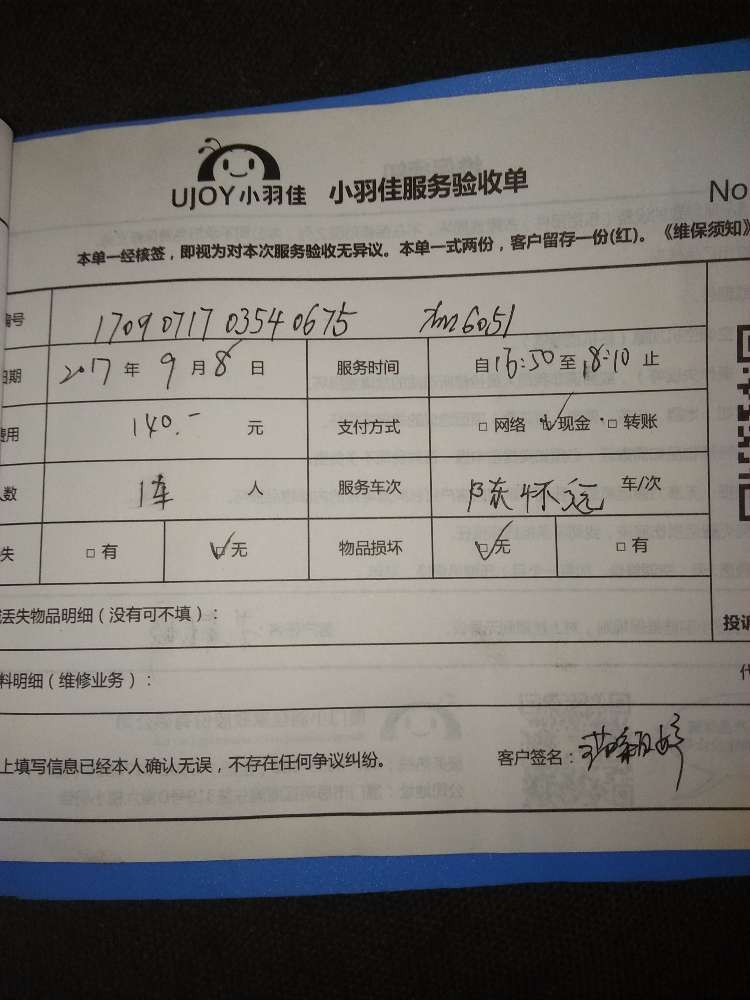 UJOY小羽佳 小羽佳服务验收单
No
本单一经核签，即视为对本次服务验收无异议。本单一式两份，客户留存一份(红)。《维保须知》
编号 170907170354 0675
日期 2017 年 9 月 8 日 服务时间 自 16:50 至 18:10 止
费用 140.- 元 支付方式 □ 网络 □现金 □ 转账
人数 1车 人 服务车次 车/次
失 □ 有 □无 物品损坏 □无 □ 有
丢失物品明细（没有可不填）：
投诉
料明细（维修业务）：
代
上填写信息已经本人确认无误，不存在任何争议纠纷。 客户签名：